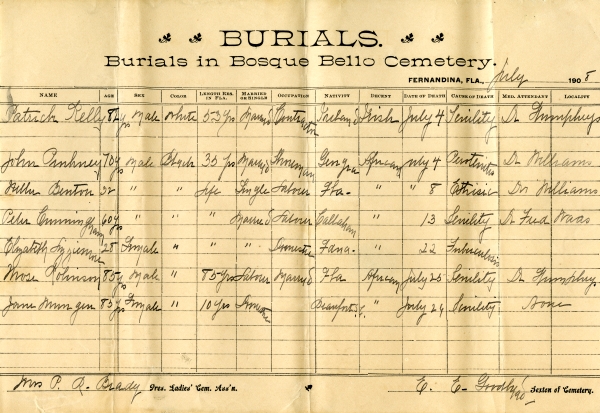 BURIALS.
Burials in Bosque Bello Cemetery.
FERNANDINA, FLA., July 1908
NAME AGE SEX COLOR LENGTH RES. IN FLA. MARRIED OR SINGLE OCCUPATION NATIVITY DECENT DATE OF DEATH CAUSE OF DEATH MED. ATTENDANT LOCALITY
Patrick Kelly 82 yrs Male White 53 yrs Married Contractor Ireland Irish July 4 Senility Dr Humphreys
John Pinkney 70 yrs Male Black 35 yrs Married Georgia African July 4 Dr Williams
Benton 32 " " life Single Labour Fla. " " 8 Dr Williams
Peter Cunningham 60 yrs " Married Labour Callahan " 13 Senility Dr Fred Waas
Elizabeth 28 Female " " " Domestic Fana. " 22 Tuberculosis
Mose Robinson 85 yrs Male " 85 yrs Labour Married Fla African July 25 Senility Dr Humphreys
Jane 85 yrs Female " 10 yrs Domestic Beaufort " July 26 Senility None
Mrs P. R. Brady Pres. Ladies' Cem. Ass'n. E. E. Sexton of Cemetery.